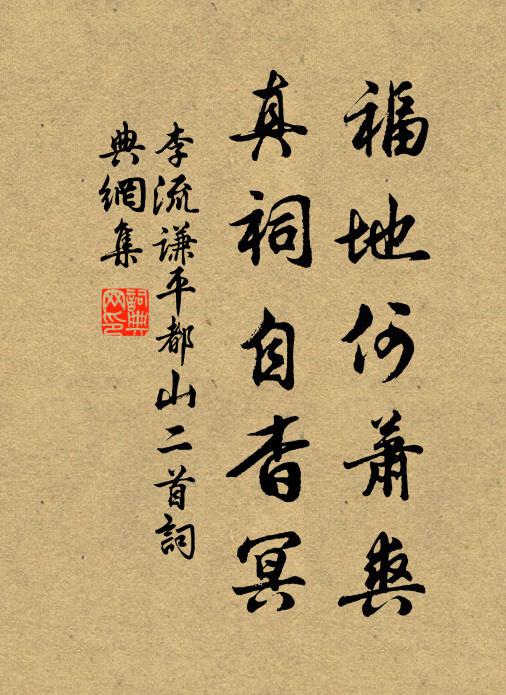 福地何蕭爽
真祠自杳冥
李流謙平都山二首詞
典網集
詞典網印